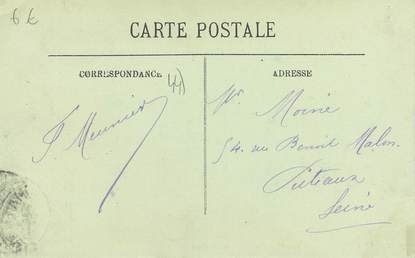 6 €
CARTE POSTALE
CORRESPONDANCE
44)
ADRESSE
F Meunier
Mr. Moine
54. rue Benoit Malon.
Puteaux
Seine